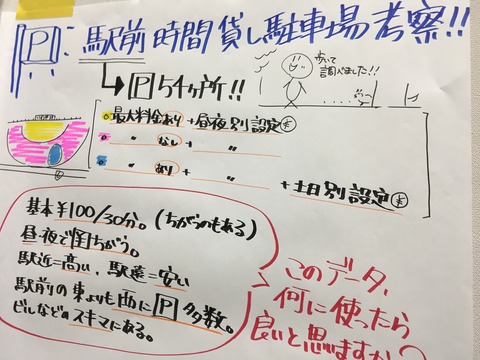 P : 駅前 時間貸し駐車場 考察!!
→ P 54ヶ所!!
歩いて
調べました!!
最大料金あり + 昼夜別設定
〃 なし + 〃
〃 あり + 〃 + 土日別設定
基本¥100/30分。(ちがうのもある)
昼・夜で
ちがう。
駅近=高い、駅遠=安い
駅前の東よりも西にP多数。
ビルなどのスキマにある。
このデータ、
何に使ったら
良いと思いますか?